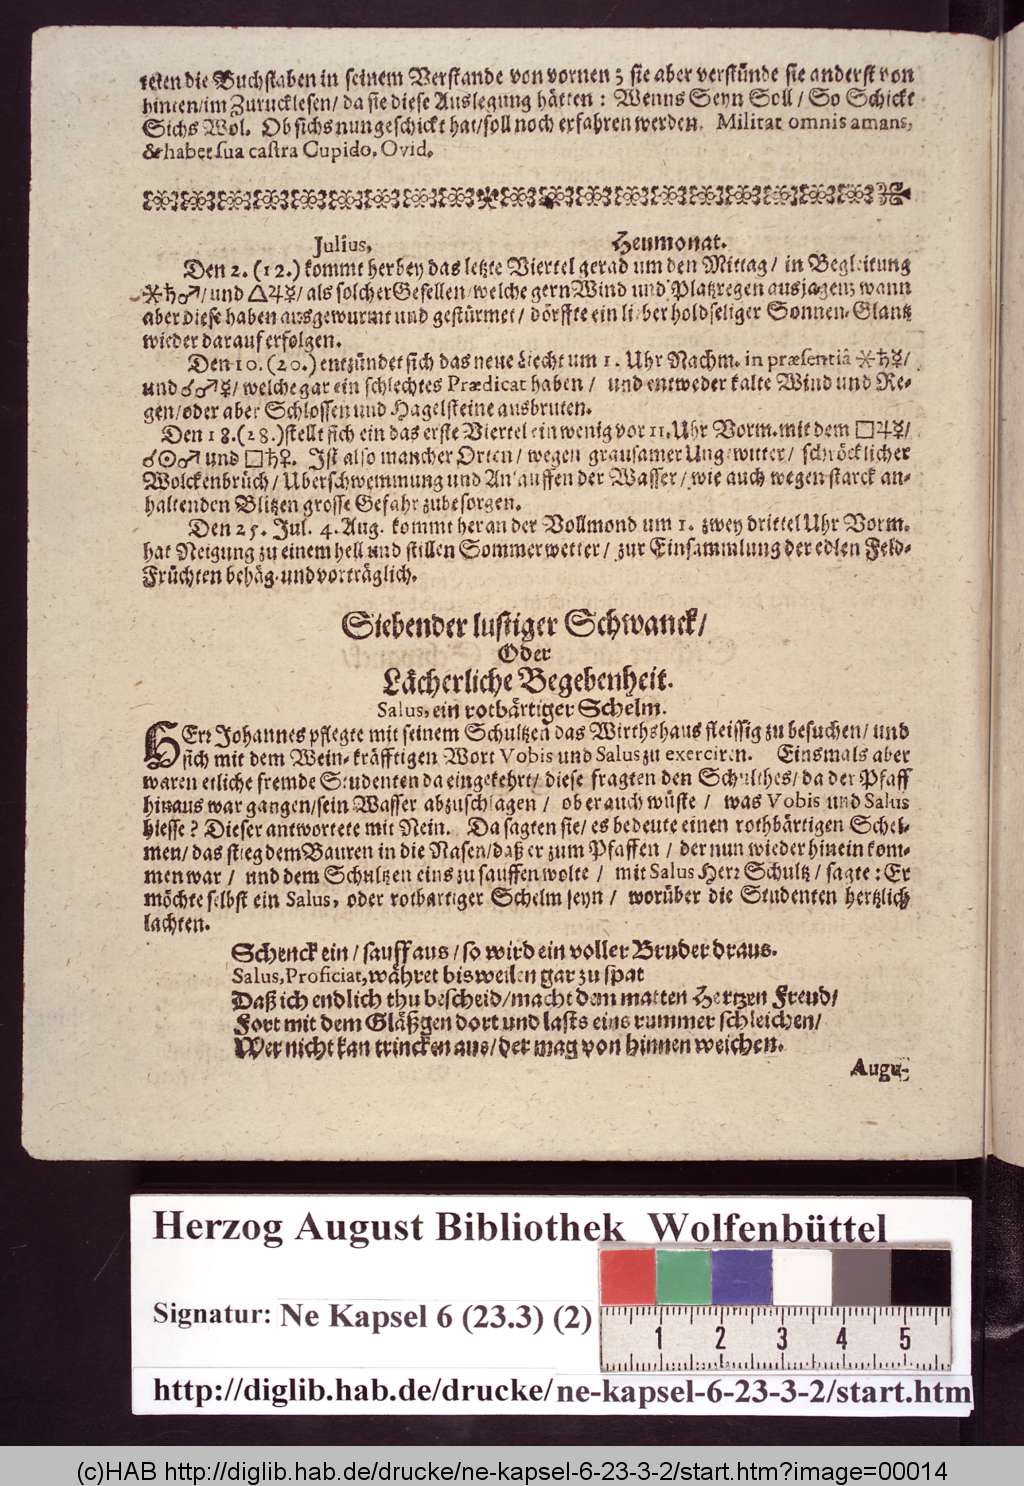 teten die Buchstaben in seinem Verstande von vornen; sie aber verstünde sie anderst von
hinten/im Zurucklesen/ da sie diese Auslegung hätten: Wenns Seyn Soll/ So Schickt
Sichs Wol. Ob sichs nun geschickt hat/soll noch erfahren werden. Militat omnis amans,
& habet sua castra Cupido, Ovid.
Julius, Heumonat.
Den 2. (12.) kommt herbey das letzte Viertel gerad um den Mittag/ in Begleitung
⚹♄♂/ und △♃☿/ als solcher Gesellen/welche gern Wind und Platzregen ausjagen; wann
aber diese haben ausgewurmt und gestürmet/ dörffte ein lieber holdseliger Sonnen-Glantz
wieder darauf erfolgen.
Den 10. (20.) entzündet sich das neue Liecht um 1. Uhr Nachm. in præsentiâ ⚹♄☿/
und ☌♂☿/ welche gar ein schlechtes Prædicat haben/ und entweder kalte Wind und Re-
gen/oder aber Schlossen und Hagelsteine ausbruten.
Den 18.(28.)stellt sich ein das erste Viertel ein wenig vor 11. Uhr Vorm. mit dem □♃☿/
☌☉♂ und □♄♀. Ist also mancher Orten/ wegen grausamer Ungewitter/ schröcklicher
Wolckenbrüch/ Uberschwemmung und Anlauffen der Wasser/ wie auch wegen starck an-
haltenden Blitzen grosse Gefahr zubesorgen.
Den 25. Jul. 4. Aug. kommt heran der Vollmond um 1. zwey drittel Uhr Vorm.
hat Neigung zu einem hell und stillen Sommerwetter/ zur Einsammlung der edlen Feld-
Früchten behäg- und vorträglich.
Siebender lustiger Schwanck/
Oder
Lächerliche Begebenheit.
Salus, ein rotbärtiger Schelm.
HErr Johannes pflegte mit seinem Schultzen das Wirthshaus fleissig zu besuchen/ und
sich mit dem Wein-kräfftigen Wort Vobis und Salus zu exerciren. Einsmals aber
waren etliche fremde Studenten da eingekehrt/ diese fragten den Schulthes/ da der Pfaff
hinaus war gangen/sein Wasser abzuschlagen/ ob er auch wüste/ was Vobis und Salus
hiesse? Dieser antwortete mit Nein. Da sagten sie/ es bedeute einen rothbärtigen Schel-
men/ das stieg dem Bauren in die Nasen/daß er zum Pfaffen/ der nun wieder hinein kom-
men war/ und dem Schultzen eins zu sauffen wolte/ mit Salus Herr Schultz/ sagte: Er
möchte selbst ein Salus, oder rotbartiger Schelm seyn/ worüber die Studenten hertzlich
lachten.
Schenck ein/ sauff aus/ so wird ein voller Bruder draus.
Salus, Proficiat, währet bisweilen gar zu spat
Daß ich endlich thu bescheid/macht dem matten Hertzen Freud/
Fort mit dem Gläßgen dort und lasts eins rummer schleichen/
Wer nicht kan trincken aus/ der mag von hinnen weichen.
Augu-
Herzog August Bibliothek Wolfenbüttel
Signatur: Ne Kapsel 6 (23.3) (2)
1 2 3 4 5
http://diglib.hab.de/drucke/ne-kapsel-6-23-3-2/start.htm
(c)HAB http://diglib.hab.de/drucke/ne-kapsel-6-23-3-2/start.htm?image=00014